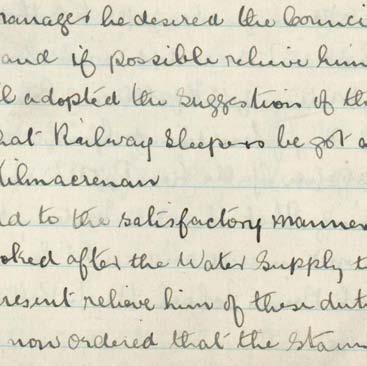 manager he desired the Counci
and if possible relieve him
l adopted the suggestion of th
hat Railway Sleepers be got a
Kilmacrenan
nd to the satisfactory manner
oked after the Water Supply t
resent relieve him of these dut
now ordered that the Stam